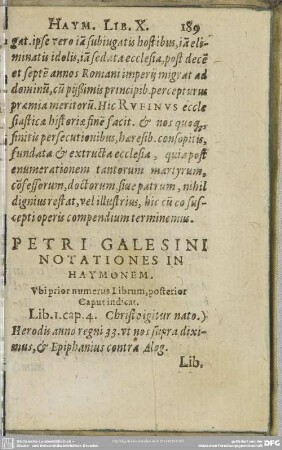 HAYM. LIB. X. 189
gat. ipse vero iã subiugatis hostibus, iã eli-
minatis idolis, iã sedata ecclesia, post decẽ
et septẽ annos Romani imperij migrat ad
dominũ, cũ pijssimis principib. percepturus
præmia meritorũ. Hic RVFINVS eccle
siasticæ historiæ finẽ facit. & nos quoq,
finitis persecutionibus, hæresib. consopitis,
fundata & extructa ecclesia, quia post
enumerationem tantorum martyrum,
cõfessorum, doctorum, siue patrum, nihil
dignius restat, vel illustrius, hic cũ co sus-
cepti operis compendium terminemus.
PETRI GALESINI
NOTATIONES IN
HAYMONEM.
Vbi prior numerus Librum, posterior
Caput indicat.
Lib. 1. cap. 4. Christo igitur nato.)
Herodis anno regni 33. vt nos supra dixi-
mus, & Epiphanius contra Alog.
Lib.